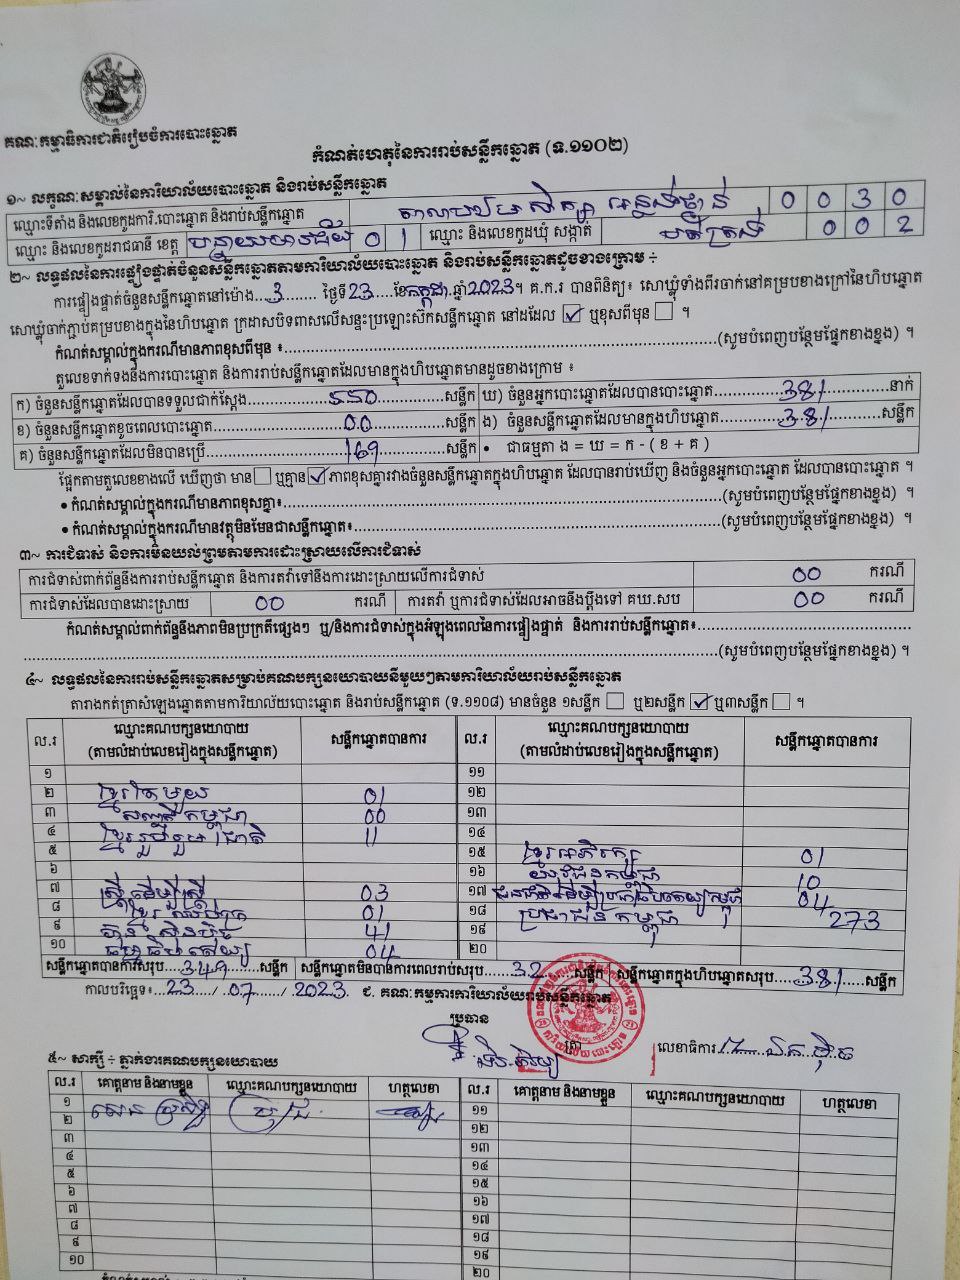 គណៈកម្មាធិការជាតិរៀបចំការបោះឆ្នោត
កំណត់ហេតុនៃការរាប់សន្លឹកឆ្នោត (ទ.១១០២)
១~ លក្ខណៈសម្គាល់នៃការិយាល័យបោះឆ្នោត និងរាប់សន្លឹកឆ្នោត
ឈ្មោះទីតាំង និងលេខកូដការិ.បោះឆ្នោត និងរាប់សន្លឹកឆ្នោត 0 0 3 0
ឈ្មោះ និងលេខកូដរាជធានី ខេត្ត បន្ទាយមានជ័យ 0 1 ឈ្មោះ និងលេខកូដឃុំ សង្កាត់ 0 0 2
២~ លទ្ធផលនៃការផ្ទៀងផ្ទាត់ចំនួនសន្លឹកឆ្នោតតាមការិយាល័យបោះឆ្នោត និងរាប់សន្លឹកឆ្នោតដូចខាងក្រោម ÷
ការផ្ទៀងផ្ទាត់ចំនួនសន្លឹកឆ្នោតនៅម៉ោង...3........ ថ្ងៃទី23.....ខែកក្កដា.ឆ្នាំ2023។ គ.ក.រ បានពិនិត្យ៖ សោឃ្លុំទាំងពីរចាក់នៅគម្របខាងក្រៅនៃហិបឆ្នោត
សោឃ្លុំចាក់ភ្ជាប់គម្របខាងក្នុងនៃហិបឆ្នោត ក្រដាសបិទពាសលើសន្ទះប្រឡោះស៊កសន្លឹកឆ្នោត នៅដដែល ☑ ឬខុសពីមុន ☐ ។
កំណត់សម្គាល់ក្នុងករណីមានភាពខុសពីមុន ៖......(សូមបំពេញបន្ថែមផ្នែកខាងខ្នង) ។
តួលេខទាក់ទងនឹងការបោះឆ្នោត និងការរាប់សន្លឹកឆ្នោតដែលមានក្នុងហិបឆ្នោតមានដូចខាងក្រោម ៖
ក) ចំនួនសន្លឹកឆ្នោតដែលបានទទួលជាក់ស្តែង......550......សន្លឹក ឃ) ចំនួនអ្នកបោះឆ្នោតដែលបានបោះឆ្នោត......381......នាក់
ខ) ចំនួនសន្លឹកឆ្នោតខូចពេលបោះឆ្នោត......00......សន្លឹក ង) ចំនួនសន្លឹកឆ្នោតដែលមានក្នុងហិបឆ្នោត......381......សន្លឹក
គ) ចំនួនសន្លឹកឆ្នោតដែលមិនបានប្រើ......169......សន្លឹក • ជាធម្មតា ង = ឃ = ក - ( ខ + គ )
ផ្អែកតាមតួលេខខាងលើ ឃើញថា មាន ☐ ឬគ្មាន ☑ ភាពខុសគ្នារវាងចំនួនសន្លឹកឆ្នោតក្នុងហិបឆ្នោត ដែលបានរាប់ឃើញ និងចំនួនអ្នកបោះឆ្នោត ដែលបានបោះឆ្នោត ។
• កំណត់សម្គាល់ក្នុងករណីមានភាពខុសគ្នា៖......(សូមបំពេញបន្ថែមផ្នែកខាងខ្នង) ។
• កំណត់សម្គាល់ក្នុងករណីមានវត្ថុមិនមែនជាសន្លឹកឆ្នោត៖......(សូមបំពេញបន្ថែមផ្នែកខាងខ្នង) ។
៣~ ការជំទាស់ និងការមិនយល់ព្រមតាមការដោះស្រាយលើការជំទាស់
ការជំទាស់ពាក់ព័ន្ធនឹងការរាប់សន្លឹកឆ្នោត និងការតវ៉ាទៅនឹងការដោះស្រាយលើការជំទាស់ 00 ករណី
ការជំទាស់ដែលបានដោះស្រាយ 00 ករណី ការតវ៉ា ឬការជំទាស់ដែលអាចនឹងប្តឹងទៅ គឃ.សប 00 ករណី
កំណត់សម្គាល់ពាក់ព័ន្ធនឹងភាពមិនប្រក្រតីផ្សេងៗ ឬ/និងការជំទាស់ក្នុងអំឡុងពេលនៃការផ្ទៀងផ្ទាត់ និងការរាប់សន្លឹកឆ្នោត៖......
......(សូមបំពេញបន្ថែមផ្នែកខាងខ្នង) ។
៤~ លទ្ធផលនៃការរាប់សន្លឹកឆ្នោតសម្រាប់គណបក្សនយោបាយនីមួយៗតាមការិយាល័យរាប់សន្លឹកឆ្នោត
តារាងកត់ត្រាសំឡេងឆ្នោតតាមការិយាល័យបោះឆ្នោត និងរាប់សន្លឹកឆ្នោត (ទ.១១០៨) មានចំនួន ១សន្លឹក ☐ ឬ២សន្លឹក ☑ ឬ៣សន្លឹក ☐ ។
ល.រ ឈ្មោះគណបក្សនយោបាយ (តាមលំដាប់លេខរៀងក្នុងសន្លឹកឆ្នោត) សន្លឹកឆ្នោតបានការ ល.រ ឈ្មោះគណបក្សនយោបាយ (តាមលំដាប់លេខរៀងក្នុងសន្លឹកឆ្នោត) សន្លឹកឆ្នោតបានការ
១ ១១
២ ខ្មែរតែមួយ 01 ១២
៣ សញ្ជាតិកម្ពុជា 00 ១៣
៤ ខ្មែររួបរួមជាតិ 11 ១៤
៥ ១៥ ខ្មែរអភិរក្ស 01
៦ ១៦ 10
៧ ស្ត្រីដើម្បីស្ត្រី 03 ១៧ 04
៨ 01 ១៨ ប្រជាជនកម្ពុជា 273
៩ ហ៊្វុនស៊ិនប៉ិច 41 ១៩
១០ ធម្មាធិបតេយ្យ 04 ២០
សន្លឹកឆ្នោតបានការសរុប....349....សន្លឹក សន្លឹកឆ្នោតមិនបានការពេលរាប់សរុប......32......សន្លឹក សន្លឹកឆ្នោតក្នុងហិបឆ្នោតសរុប....381....សន្លឹក
កាលបរិច្ឆេទ៖..23..../..07..../..2023. ជ. គណៈកម្មការការិយាល័យរាប់សន្លឹកឆ្នោត
ប្រធាន
ត្រា លេខាធិការ
៥~ សាក្សី ÷ ភ្នាក់ងារគណបក្សនយោបាយ
ល.រ គោត្តនាម និងនាមខ្លួន ឈ្មោះគណបក្សនយោបាយ ហត្ថលេខា ល.រ គោត្តនាម និងនាមខ្លួន ឈ្មោះគណបក្សនយោបាយ ហត្ថលេខា
១ ១១
២ ១២
៣ ១៣
៤ ១៤
៥ ១៥
៦ ១៦
៧ ១៧
៨ ១៨
៩ ១៩
១០ ២០